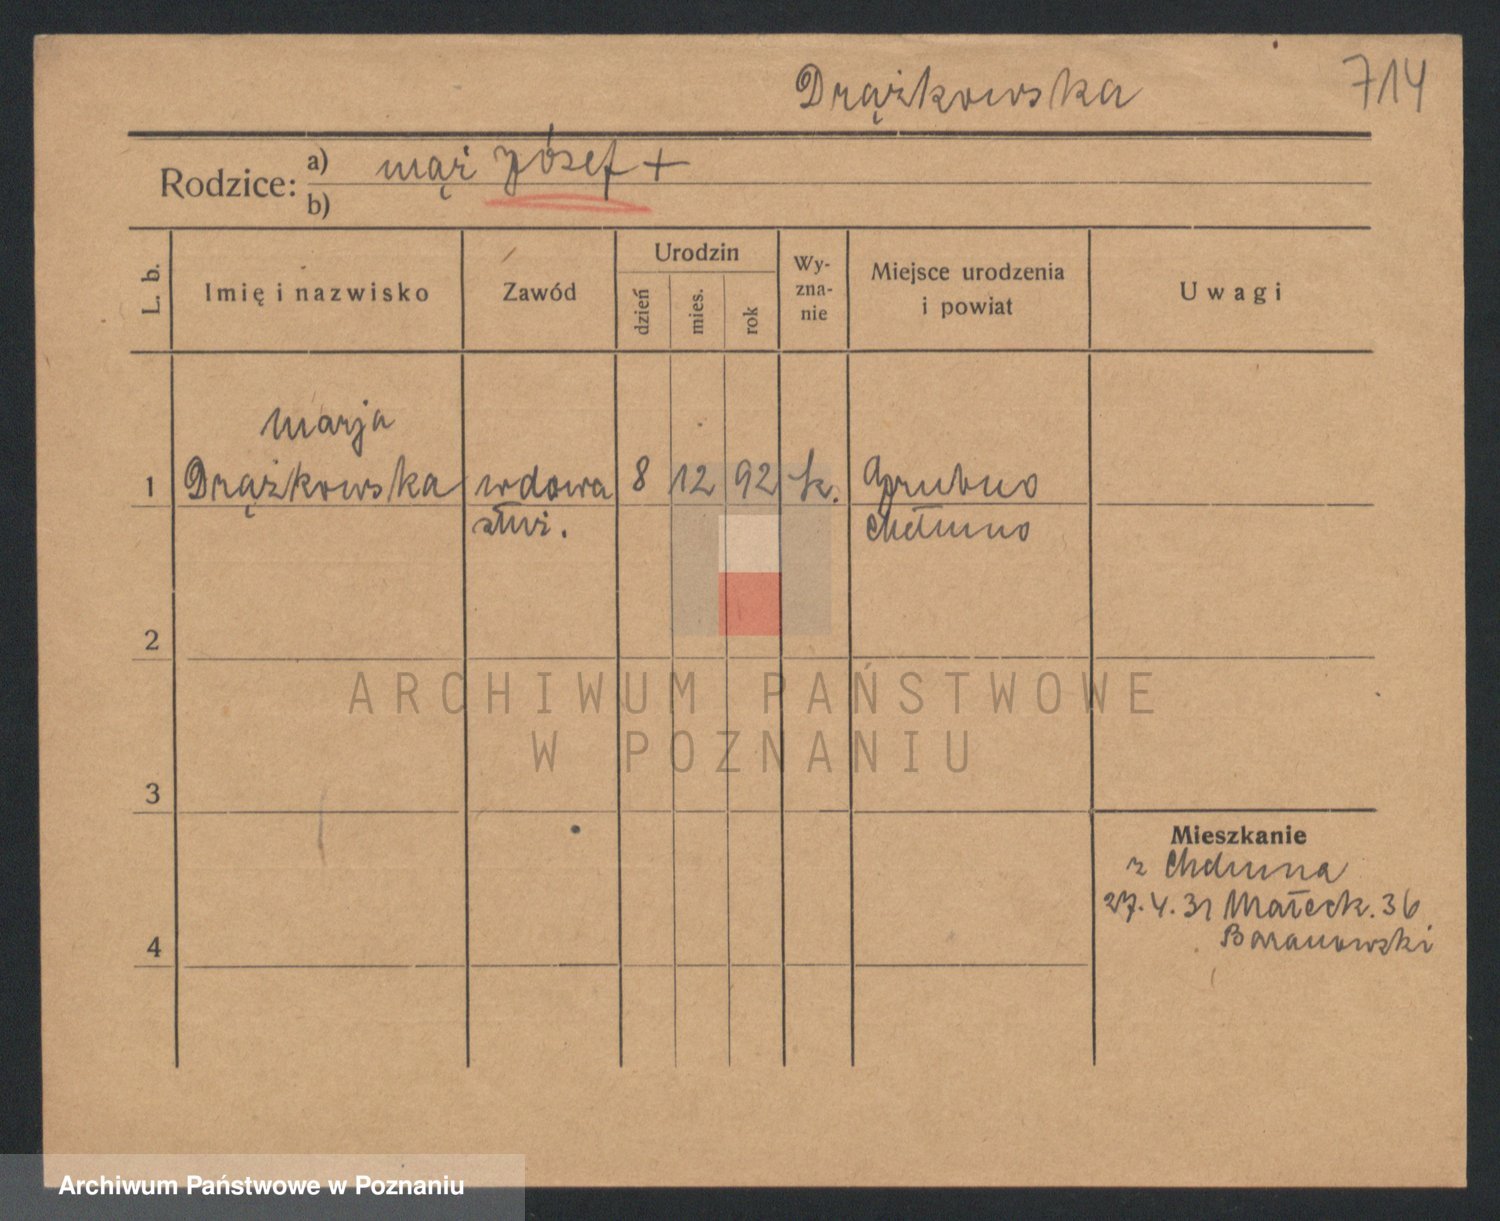 Drążkowska 714
Rodzice: a) mąż Józef +
b)
L. b.
Imię i nazwisko
Zawód
Urodzin
dzień
mies.
rok
Wy-
zna-
nie
Miejsce urodzenia
i powiat
Uwagi
Marja
1 Drążkowska wdowa 8 12 92 k. Grubno
służ. Chełmno
2
3
4
Mieszkanie
z Chełmna
27.4.31 Małeck. 36
Baranowski
ARCHIWUM PAŃSTWOWE
W POZNANIU
Archiwum Państwowe w Poznaniu